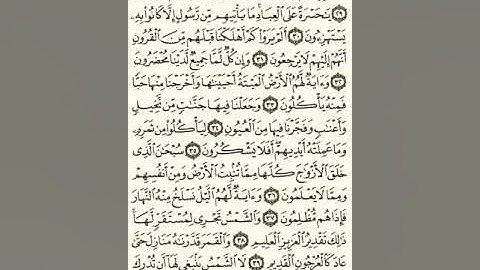 ﴿٢٩﴾ يَٰحَسْرَةً عَلَى ٱلْعِبَادِ مَا يَأْتِيهِم مِّن رَّسُولٍ إِلَّا كَانُوا۟ بِهِۦ
يَسْتَهْزِءُونَ ﴿٣٠﴾ أَلَمْ يَرَوْا۟ كَمْ أَهْلَكْنَا قَبْلَهُم مِّنَ ٱلْقُرُونِ
أَنَّهُمْ إِلَيْهِمْ لَا يَرْجِعُونَ ﴿٣١﴾ وَإِن كُلٌّ لَّمَّا جَمِيعٌ لَّدَيْنَا مُحْضَرُونَ
﴿٣٢﴾ وَءَايَةٌ لَّهُمُ ٱلْأَرْضُ ٱلْمَيْتَةُ أَحْيَيْنَٰهَا وَأَخْرَجْنَا مِنْهَا حَبًّا
فَمِنْهُ يَأْكُلُونَ ﴿٣٣﴾ وَجَعَلْنَا فِيهَا جَنَّٰتٍ مِّن نَّخِيلٍ
وَأَعْنَٰبٍ وَفَجَّرْنَا فِيهَا مِنَ ٱلْعُيُونِ ﴿٣٤﴾ لِيَأْكُلُوا۟ مِن ثَمَرِهِۦ
وَمَا عَمِلَتْهُ أَيْدِيهِمْ أَفَلَا يَشْكُرُونَ ﴿٣٥﴾ سُبْحَٰنَ ٱلَّذِى
خَلَقَ ٱلْأَزْوَٰجَ كُلَّهَا مِمَّا تُنۢبِتُ ٱلْأَرْضُ وَمِنْ أَنفُسِهِمْ
وَمِمَّا لَا يَعْلَمُونَ ﴿٣٦﴾ وَءَايَةٌ لَّهُمُ ٱلَّيْلُ نَسْلَخُ مِنْهُ ٱلنَّهَارَ
فَإِذَا هُم مُّظْلِمُونَ ﴿٣٧﴾ وَٱلشَّمْسُ تَجْرِى لِمُسْتَقَرٍّ لَّهَا
ذَٰلِكَ تَقْدِيرُ ٱلْعَزِيزِ ٱلْعَلِيمِ ﴿٣٨﴾ وَٱلْقَمَرَ قَدَّرْنَٰهُ مَنَازِلَ حَتَّىٰ
عَادَ كَٱلْعُرْجُونِ ٱلْقَدِيمِ ﴿٣٩﴾ لَا ٱلشَّمْسُ يَنۢبَغِى لَهَآ أَن تُدْرِكَ